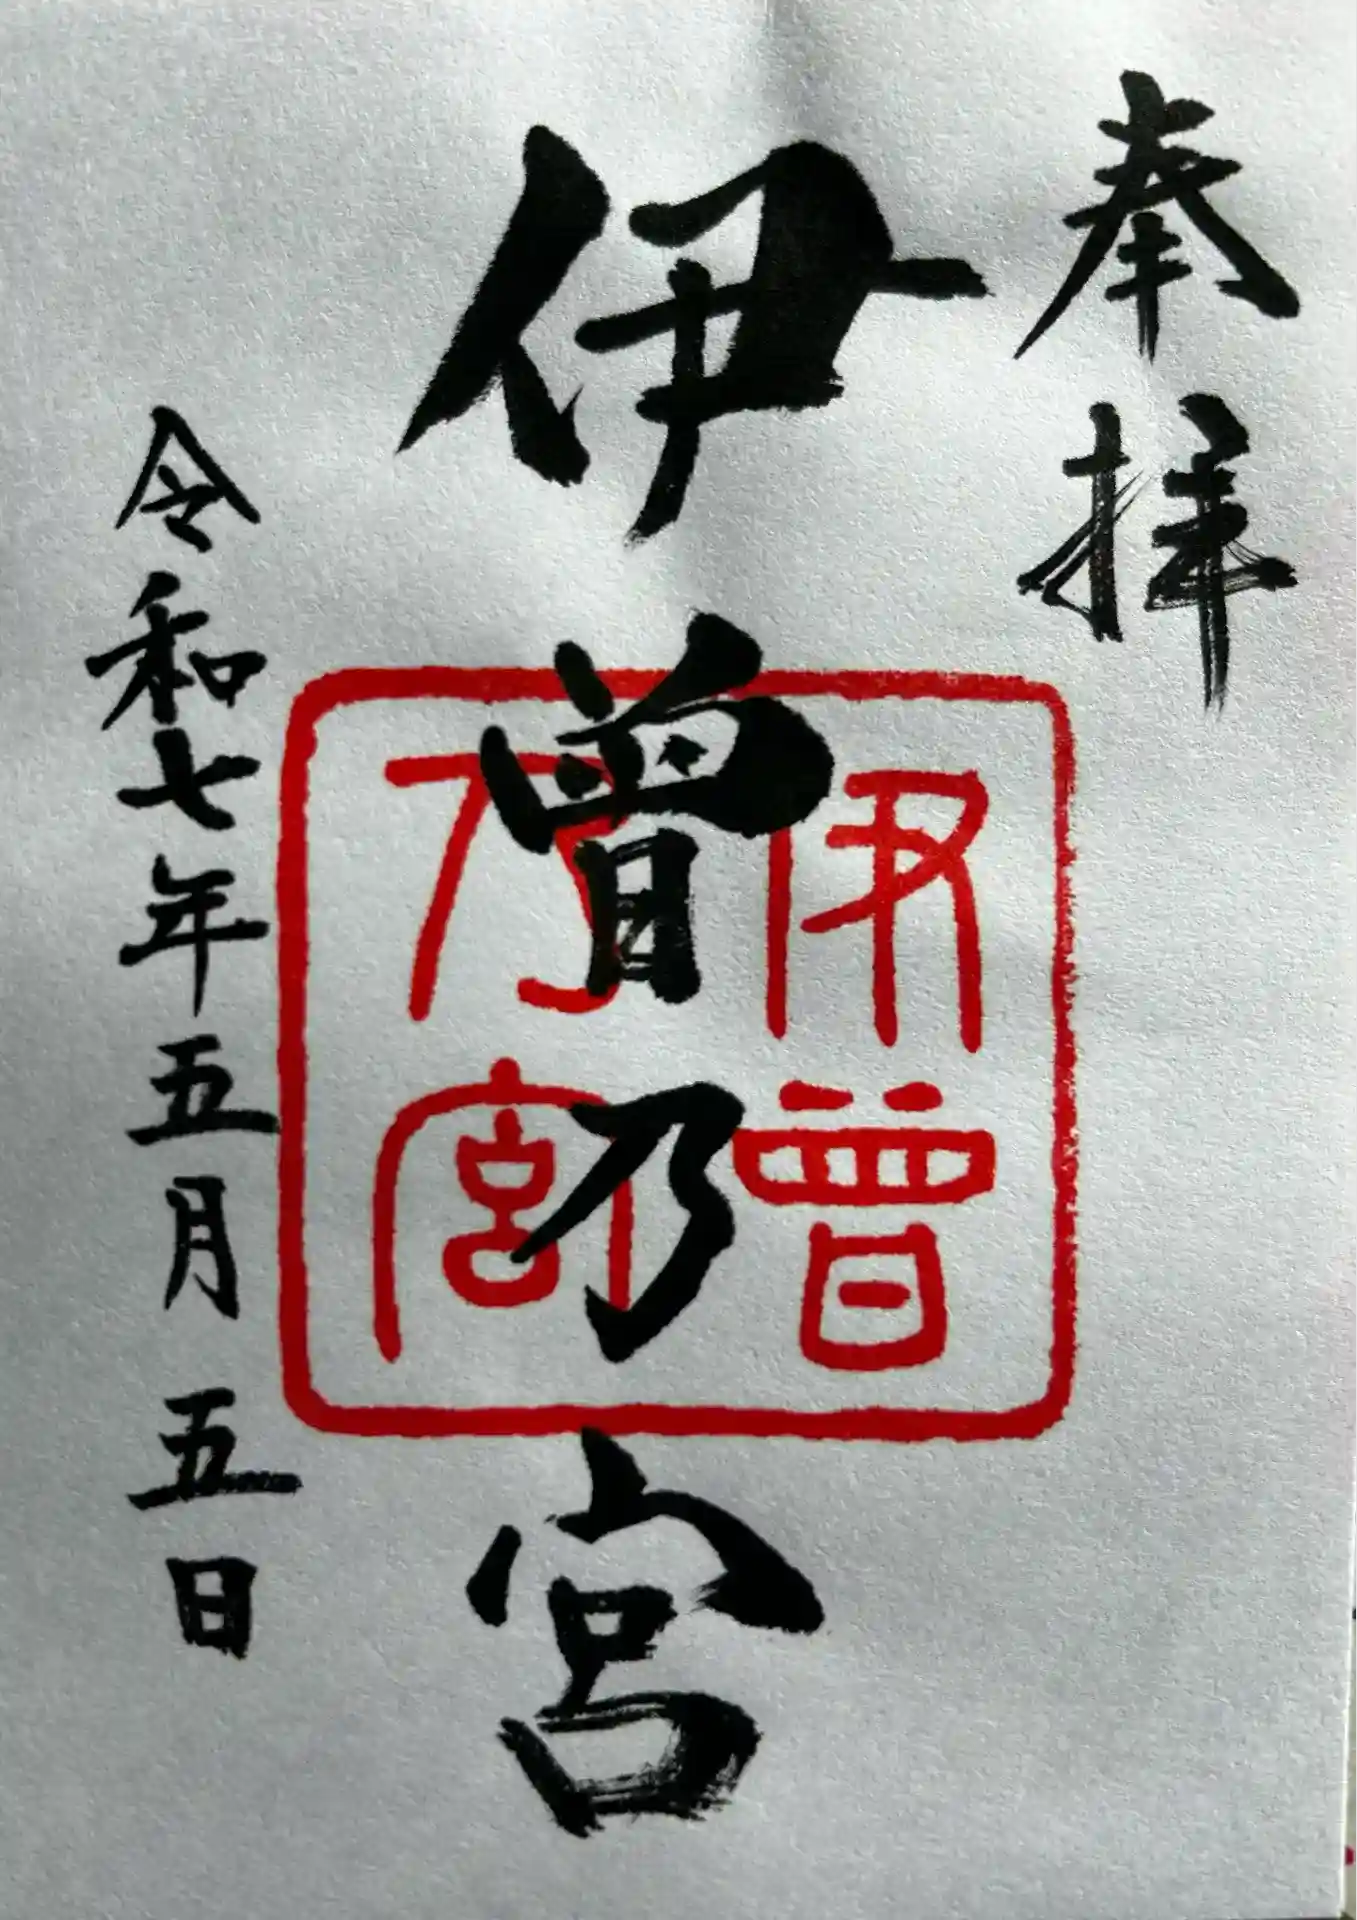 奉拝
伊曽乃宮
伊曽乃宮
令和七年五月五日